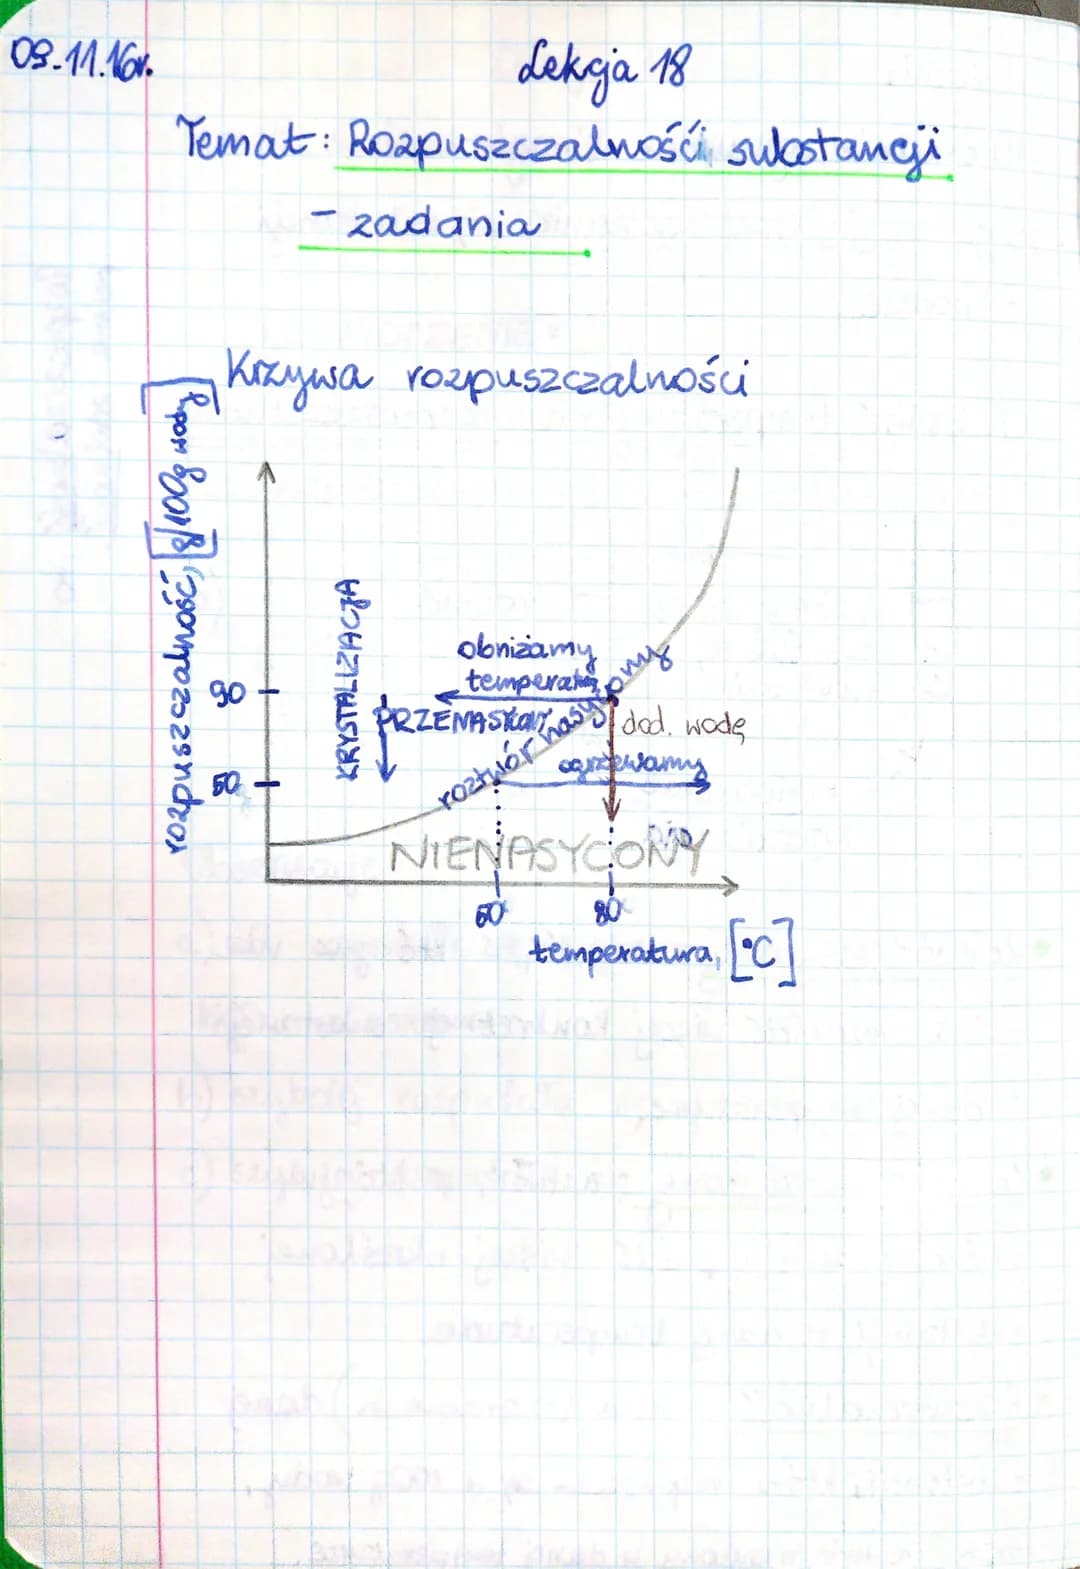 09.11.16r.
Lekcja 18
Temat: Rozpuszczalności substancji
- zadania
Krzywa rozpuszczalności
rozpuszczalność, [g/100g wody]
90
50
KRYSTALIZACJA
obniżamy
temperat
PRZENASYCONY
roztwór nasycony
dod. wodę
ogrzewamy
NIENASYCONY
60
80
temperatura, [°C]